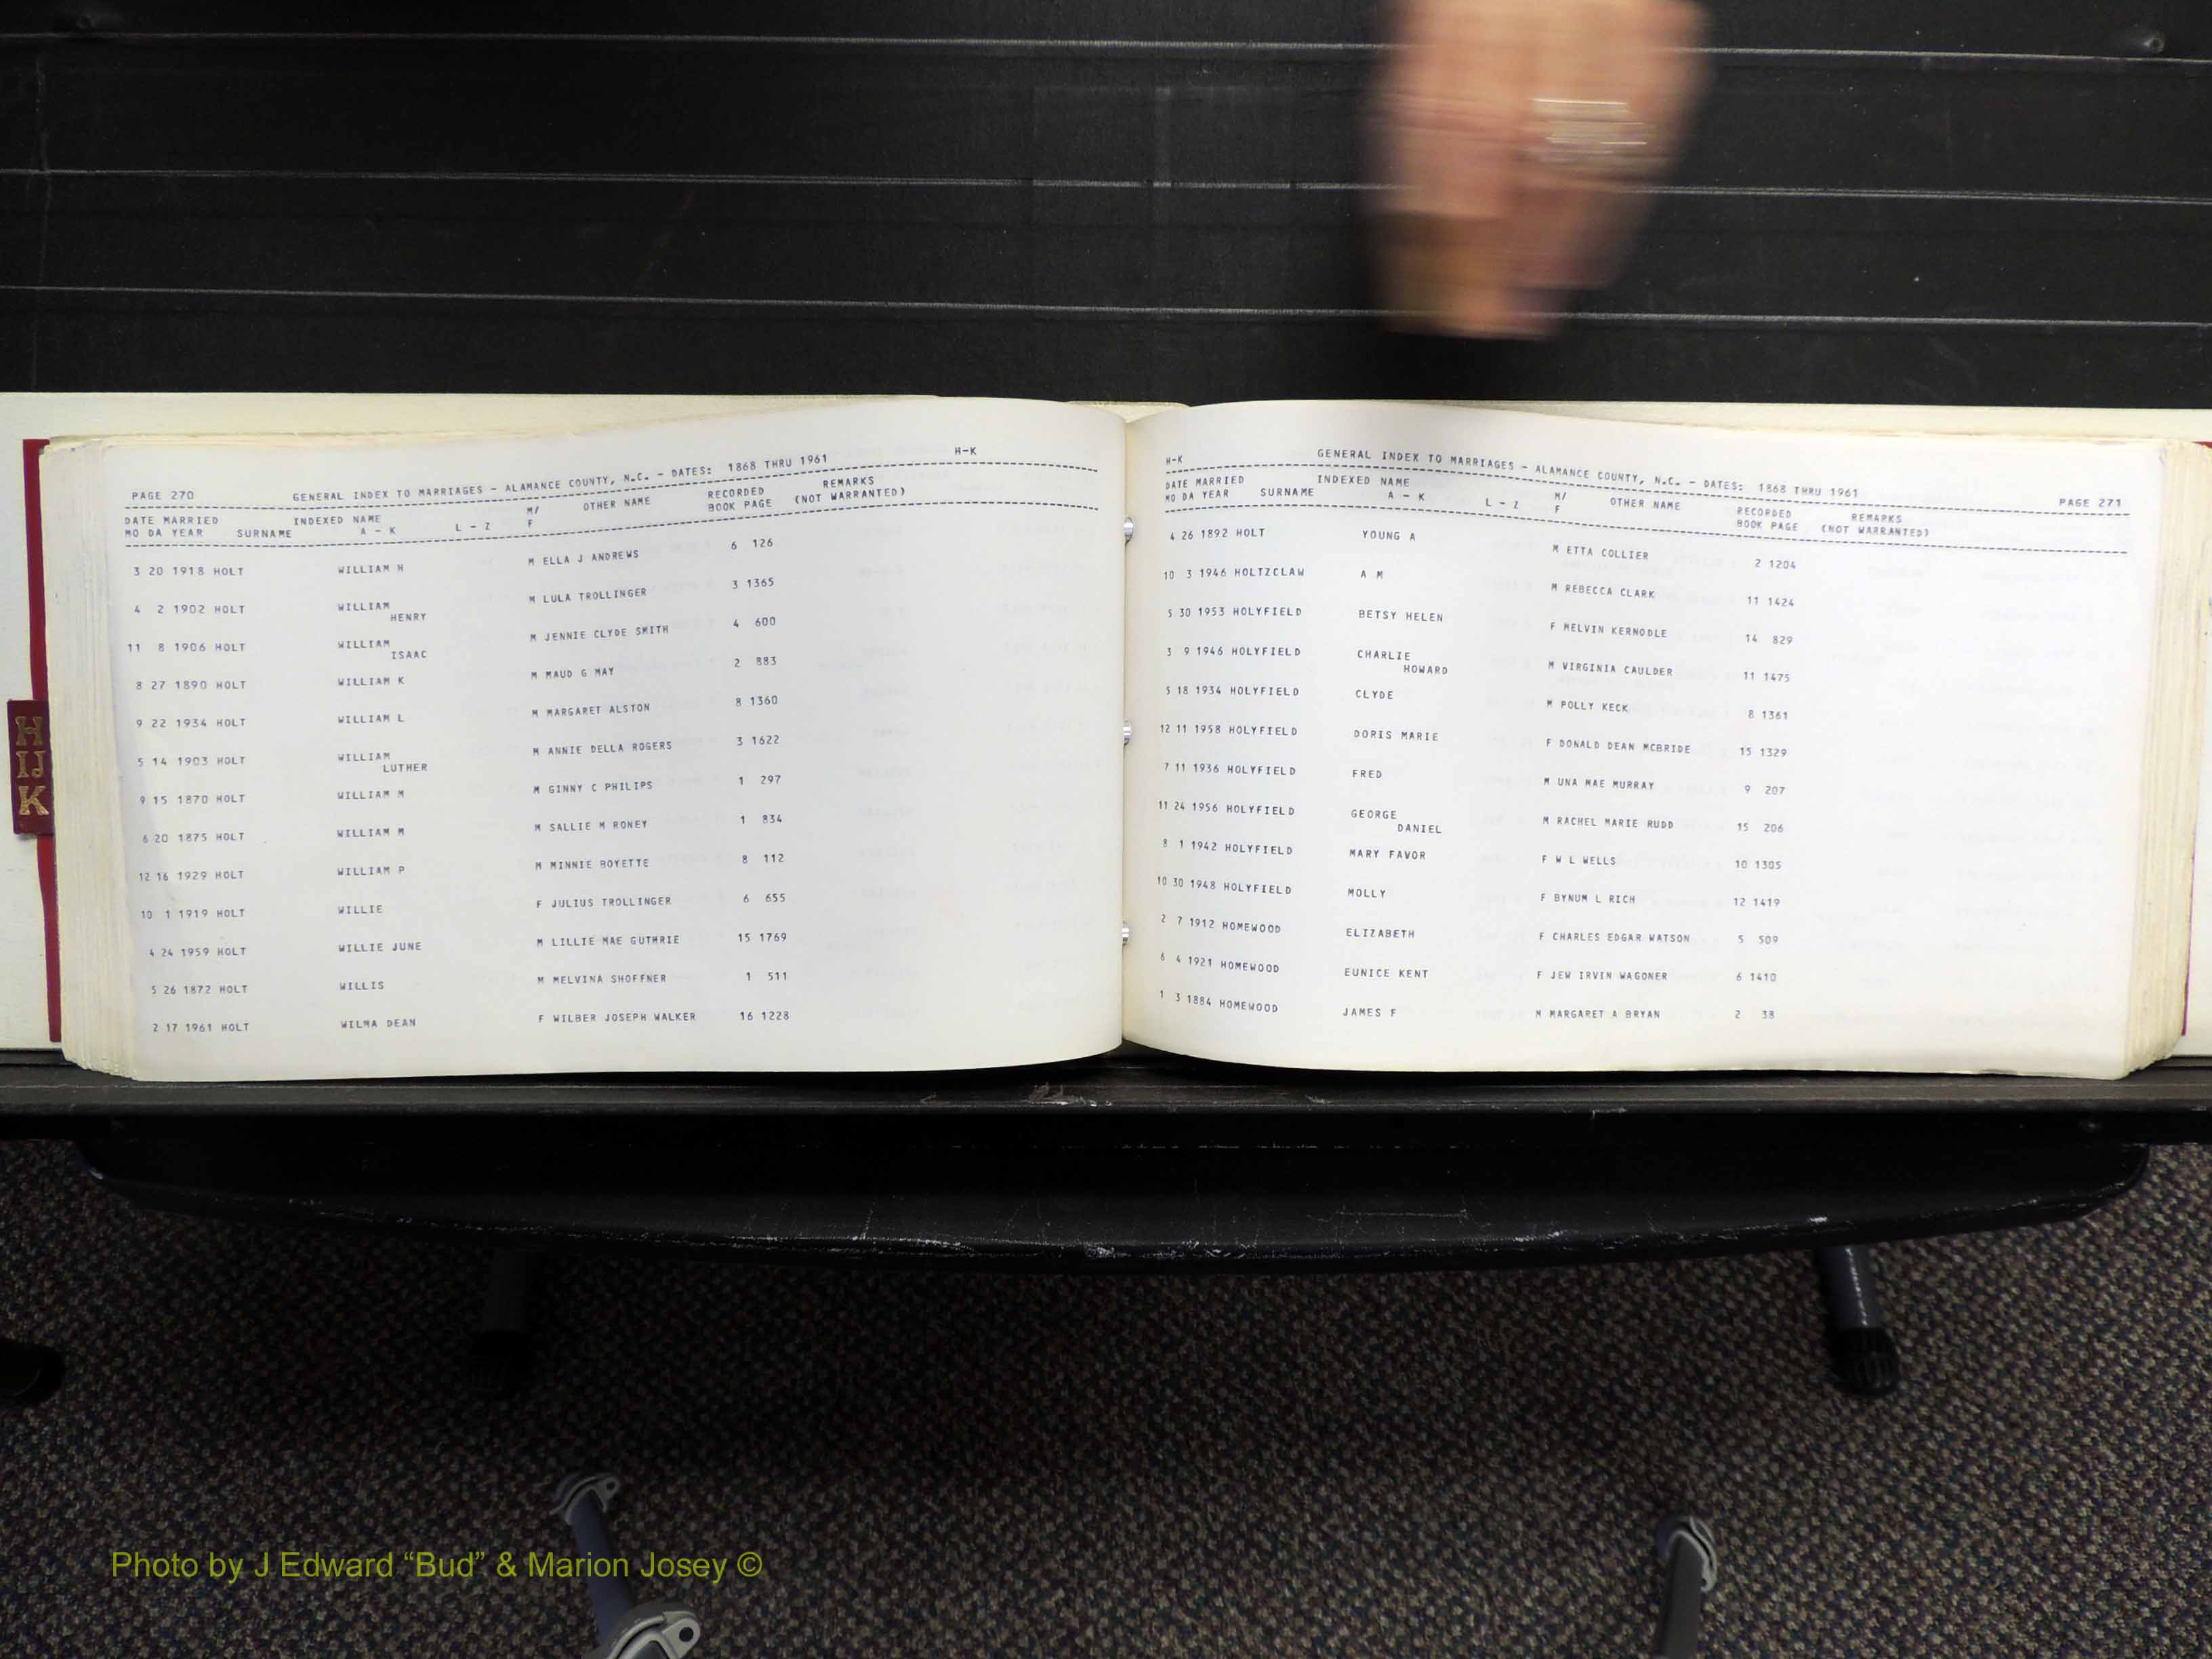 H
IJ
K
H-K
PAGE 270 GENERAL INDEX TO MARRIAGES - ALAMANCE COUNTY, N.C. - DATES: 1868 THRU 1961
DATE MARRIED INDEXED NAME M/ OTHER NAME RECORDED REMARKS
MO DA YEAR SURNAME A - K L - Z F BOOK PAGE (NOT WARRANTED)
3 20 1918 HOLT WILLIAM H M ELLA J ANDREWS 6 126
4 2 1902 HOLT WILLIAM M LULA TROLLINGER 3 1365
HENRY
11 8 1906 HOLT WILLIAM M JENNIE CLYDE SMITH 4 600
ISAAC
8 27 1890 HOLT WILLIAM K M MAUD G MAY 2 883
9 22 1934 HOLT WILLIAM L M MARGARET ALSTON 8 1360
5 14 1903 HOLT WILLIAM M ANNIE DELLA ROGERS 3 1622
LUTHER
9 15 1870 HOLT WILLIAM M M GINNY C PHILIPS 1 297
6 20 1875 HOLT WILLIAM M M SALLIE M RONEY 1 834
12 16 1929 HOLT WILLIAM P M MINNIE BOYETTE 8 112
10 1 1919 HOLT WILLIE F JULIUS TROLLINGER 6 655
4 24 1959 HOLT WILLIE JUNE M LILLIE MAE GUTHRIE 15 1769
5 26 1872 HOLT WILLIS M MELVINA SHOFFNER 1 511
2 17 1961 HOLT WILMA DEAN F WILBER JOSEPH WALKER 16 1228
H-K GENERAL INDEX TO MARRIAGES - ALAMANCE COUNTY, N.C. - DATES: 1868 THRU 1961 PAGE 271
DATE MARRIED INDEXED NAME M/ OTHER NAME RECORDED REMARKS
MO DA YEAR SURNAME A - K L - Z F BOOK PAGE (NOT WARRANTED)
4 26 1892 HOLT YOUNG A M ETTA COLLIER 2 1204
10 3 1946 HOLTZCLAW A M M REBECCA CLARK 11 1424
5 30 1953 HOLYFIELD BETSY HELEN F MELVIN KERNODLE 14 829
3 9 1946 HOLYFIELD CHARLIE M VIRGINIA CAULDER 11 1475
HOWARD
5 18 1934 HOLYFIELD CLYDE M POLLY KECK 8 1361
12 11 1958 HOLYFIELD DORIS MARIE F DONALD DEAN MCBRIDE 15 1329
7 11 1936 HOLYFIELD FRED M UNA MAE MURRAY 9 207
11 24 1956 HOLYFIELD GEORGE M RACHEL MARIE RUDD 15 206
DANIEL
8 1 1942 HOLYFIELD MARY FAVOR F W L WELLS 10 1305
10 30 1948 HOLYFIELD MOLLY F BYNUM L RICH 12 1419
2 7 1912 HOMEWOOD ELIZABETH F CHARLES EDGAR WATSON 5 509
6 4 1921 HOMEWOOD EUNICE KENT F JEW IRVIN WAGONER 6 1410
1 3 1884 HOMEWOOD JAMES F M MARGARET A BRYAN 2 38
Photo by J Edward “Bud” & Marion Josey ©